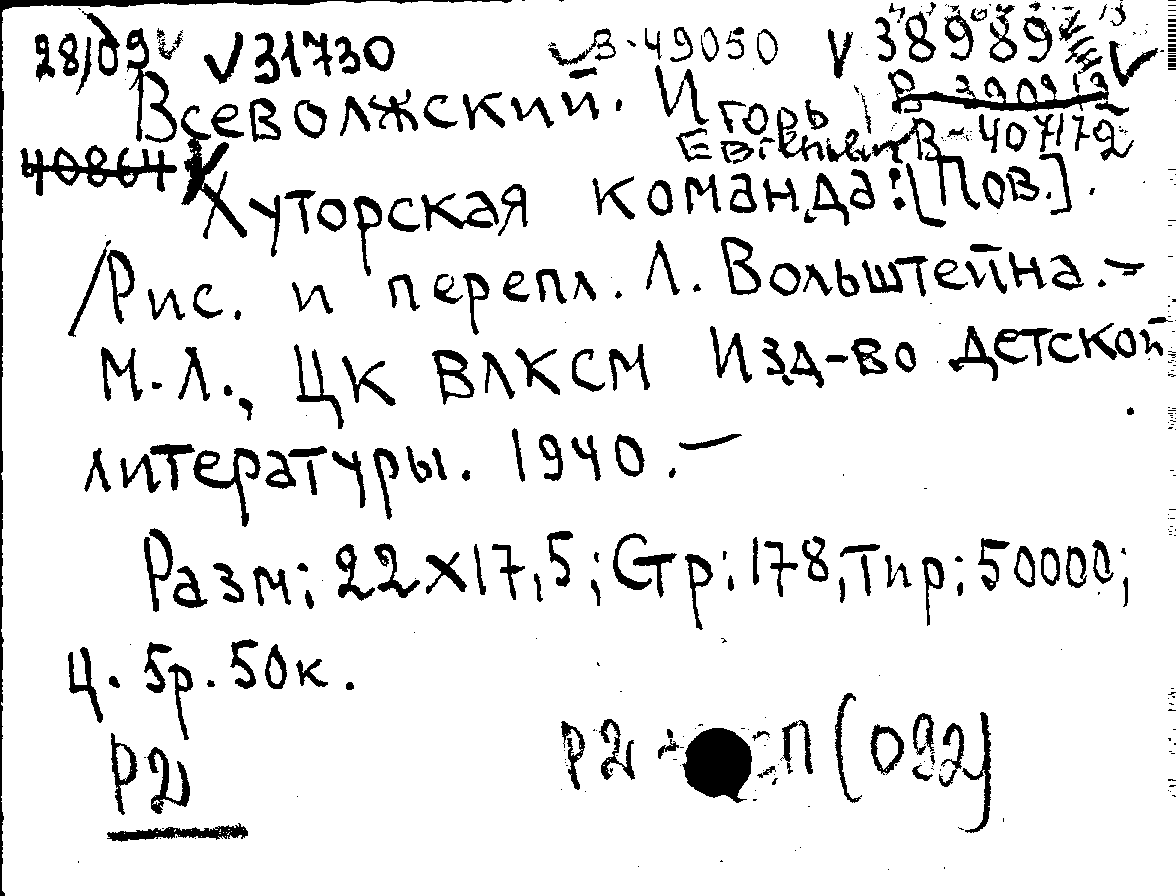 28/09 V V 31730 V В-49050 V 38989 V
Всеволжский. Игорь
Евгеньевич В-407172
40864 V
Хуторская команда: [Пов.].
/Рис. и перепл. Л. Вольштейна.-
М.-Л., ЦК ВЛКСМ Изд-во детской
литературы. 1940.-
Разм: 22х17,5; Стр: 178, Тир: 50000;
Ц. 5р. 50к.
Р2 Р2 П (092)